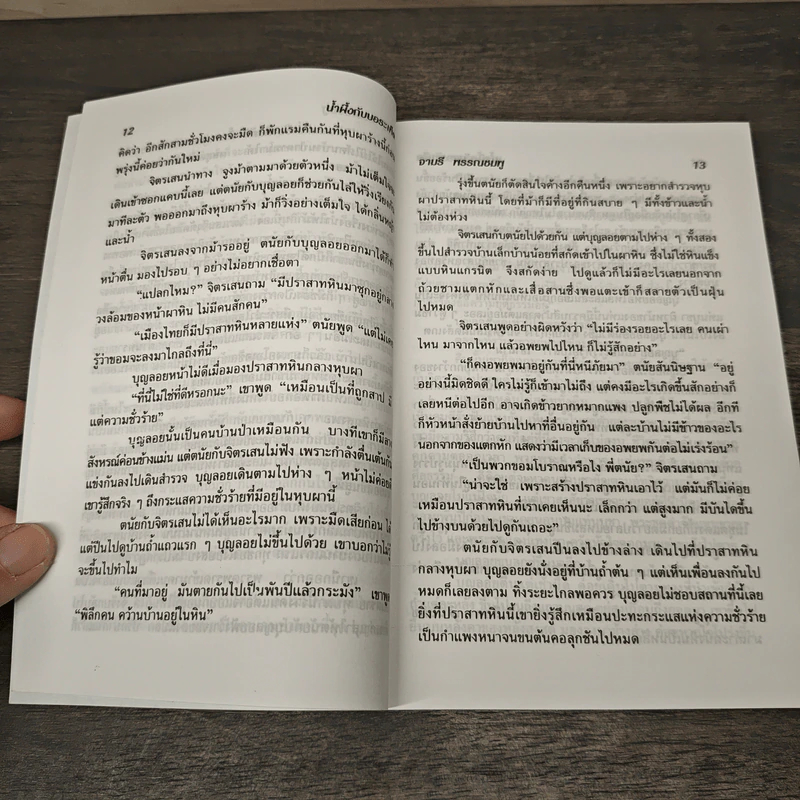 12
น้ำผึ้งกับบอระเพ็ด
คิดว่า อีกสักสามชั่วโมงคงจะมืด ก็พักแรมคืนกันที่หุบผาร้างนี้ก่อน
พรุ่งนี้ค่อยว่ากันใหม่
จิตรเสนนำทาง จูงม้าตามมาด้วยตัวหนึ่ง ม้าไม่เต็มใจ
เดินเข้าซอกแคบนี้เลย แต่ตนัยกับบุญลอยก็ช่วยกันไล่ให้วิ่งเรียง
มาทีละตัว พอออกมาถึงหุบผาร้าง ม้าก็วิ่งอย่างเต็มใจ ได้กลิ่น
และน้ำ
จิตรเสนลงจากม้ารออยู่ ตนัยกับบุญลอยออกมาได้ก็
หน้าตื่น มองไปรอบ ๆ อย่างไม่อยากเชื่อตา
“แปลกไหม?” จิตรเสนถาม “มีปราสาทหินมาซุกอยู่กลาง
วงล้อมของหน้าผาหิน ไม่มีคนสักคน”
“เมืองไทยก็มีปราสาทหินหลายแห่ง” ตนัยพูด “แต่ไม่เคย
รู้ว่าขอมจะลงมาไกลถึงที่นี่”
บุญลอยหน้าไม่ดีเมื่อมองปราสาทหินกลางหุบผา
“ที่นี่ไม่ใช่ที่ดีหรอกนะ” เขาพูด “เหมือนเป็นที่ถูกสาป มี
แต่ความชั่วร้าย”
บุญลอยนั้นเป็นคนบ้านป่าเหมือนกัน บางทีเขาก็มี
สังหรณ์ค่อนข้างแม่น แต่ตนัยกับจิตรเสนไม่ฟัง เพราะกำลังตื่นเต้นกับ
แข่งกันลงไปเดินสำรวจ บุญลอยเดินตามไปห่าง ๆ หน้าไม่ค่อยดี
เขารู้สึกจริง ๆ ถึงกระแสความชั่วร้ายที่มีอยู่ในหุบผานี้
ตนัยกับจิตรเสนไม่ได้เห็นอะไรมาก เพราะมืดเสียก่อน ได้
แต่ปีนไปดูบ้านถ้ำแถวแรก ๆ บุญลอยไม่ขึ้นไปด้วย เขาบอกว่าไม่รู้
จะขึ้นไปทำไม
“คนที่มาอยู่ มันตายกันไปเป็นพันปีแล้วกระมัง” เขาพูด
“พิลึกคน คว้านบ้านอยู่ในหิน”
จามรี พรรณชมพู
13
รุ่งขึ้นตนัยก็ตัดสินใจค้างอีกคืนหนึ่ง เพราะอยากสำรวจหุบ
ผาปราสาทหินนี้ โดยที่ม้าก็มีที่อยู่ที่กินสบาย ๆ มีทั้งข้าวและน้ำ
ไม่ต้องห่วง
จิตรเสนกับตนัยไปด้วยกัน แต่บุญลอยตามไปห่าง ๆ ทั้งสอง
ขึ้นไปสำรวจบ้านเล็กบ้านน้อยที่สกัดเข้าไปในผาหิน ซึ่งไม่ใช่หินแข็ง
แบบหินแกรนิต จึงสกัดง่าย ไปดูแล้วก็ไม่มีอะไรเลยนอกจาก
ถ้วยชามแตกหักและเสื่อสานซึ่งพอแตะเข้าก็สลายตัวเป็นฝุ่น
ไปหมด
จิตรเสนพูดอย่างผิดหวังว่า “ไม่มีร่องรอยอะไรเลย คนเผ่า
ไหน มาจากไหน แล้วอพยพไปไหน ก็ไม่รู้สักอย่าง”
“ก็คงอพยพมาอยู่กันที่นี่หนีภัยมา” ตนัยสันนิษฐาน “อยู่
อย่างนี้มิดชิดดี ใครไม่รู้ก็เข้ามาไม่ถึง แต่คงมีอะไรเกิดขึ้นสักอย่างก็
เลยหนีต่อไปอีก อาจเกิดข้าวยากหมากแพง ปลูกพืชไม่ได้ผล อีกที
ก็หัวหน้าสั่งย้ายบ้านไปหาที่อื่นอยู่กัน แต่ละบ้านไม่มีข้าวของอะไร
นอกจากของแตกหัก แสดงว่ามีเวลาเก็บของอพยพกันต่อไม่เร่งร้อน”
“เป็นพวกขอมโบราณหรือไง พี่ตนัย?” จิตรเสนถาม
“น่าจะใช่ เพราะสร้างปราสาทหินเอาไว้ แต่มันก็ไม่ค่อย
เหมือนปราสาทหินที่เราเคยเห็นนะ เล็กกว่า แต่สูงมาก มีบันไดขึ้น
ไปข้างบนด้วยไปดูกันเถอะ”
ตนัยกับจิตรเสนปีนลงไปข้างล่าง เดินไปที่ปราสาทหิน
กลางหุบผา บุญลอยยังนั่งอยู่ที่บ้านถ้ำต้น ๆ แต่เห็นเพื่อนลงกันไป
หมดก็เลยลงตาม ทิ้งระยะไกลพอควร บุญลอยไม่ชอบสถานที่นี้เลย
ยิ่งที่ปราสาทหินนี้เขายิ่งรู้สึกเหมือนปะทะกระแสแห่งความชั่วร้าย
เป็นกำแพงหนาจนขนต้นคอลุกชันไปหมด